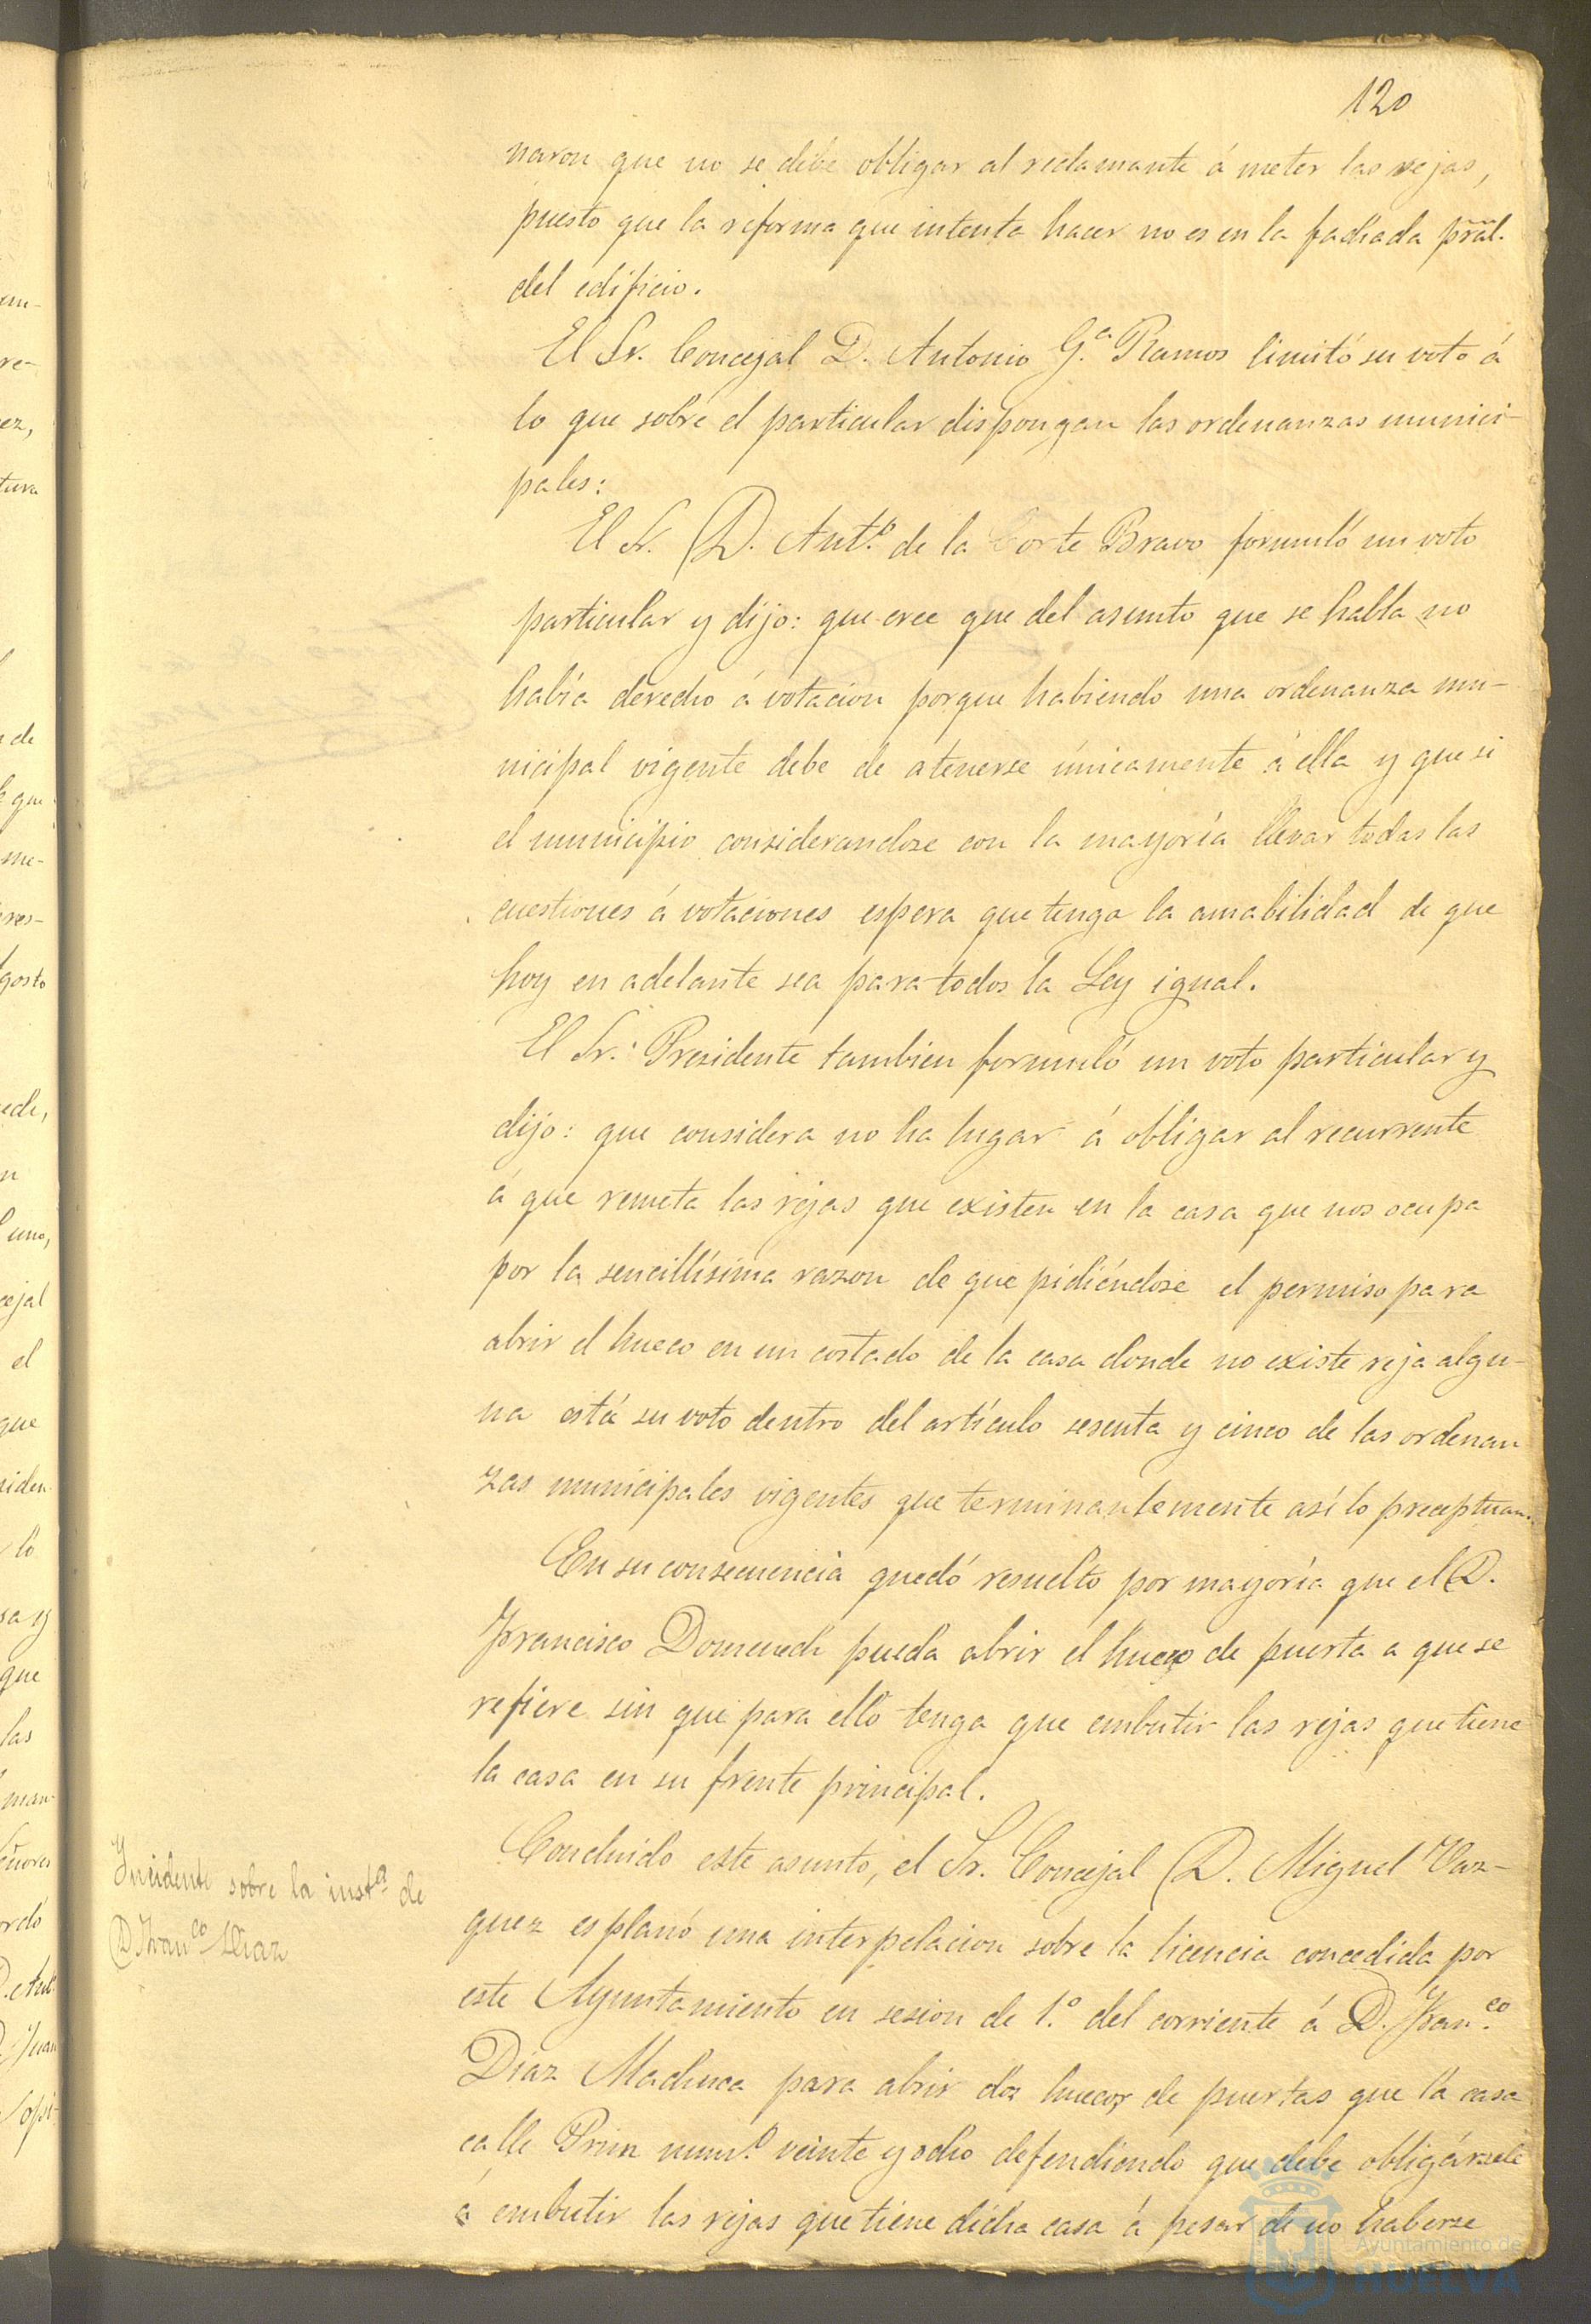 120
naron que no se debe obligar al reclamante á meter las rejas,
puesto que la reforma que intenta hacer no es en la fachada pral.
del edificio.
El Sr. Concejal D. Antonio G.ª Ramos limitó su voto á
lo que sobre el particular dispongan las ordenanzas munici-
pales:
El Sr. D. Ant.º de la Corte Bravo formuló un voto
particular y dijo: que cree que del asunto que se habla no
había derecho á votacion porque habiendo una ordenanza mu-
nicipal vigente debe de atenerse únicamente á ella y que si
el municipio considerandose con la mayoría llevar todas las
cuestiones á votaciones espera que tenga la amabilidad de que
hoy en adelante sea para todos la Ley igual.
El Sr. Presidente tambien formuló un voto particular y
dijo: que considera no ha lugar á obligar al recurrente
á que remeta las rejas que existen en la casa que nos ocupa
por la sencillísima razon de que pidiéndose el permiso para
abrir el hueco en un costado de la casa donde no existe reja algu-
na está su voto dentro del artículo sesenta y cinco de las ordenan
zas municipales vigentes que terminantemente así lo preceptuan.
En su consecuencia quedó resuelto por mayoría que el D.
Francisco Domenech pueda abrir el hueco de puerta a que se
refiere sin que para ello tenga que embutir las rejas que tiene
la casa en su frente principal.
Incidente sobre la inst.ª de
D. Fran.co Diaz
Concluido este asunto, el Sr. Concejal D. Miguel Vaz-
quez esplanó una interpelacion sobre la licencia concedida por
este Ayuntamiento en sesion de 1.º del corriente á D. Fran.co
Díaz Machuca para abrir dos huecos de puertas que la casa
calle Prim num.º veinte y ocho defendiendo que debe obligársele
á embutir las rejas que tiene dicha casa á pesar de no haberse
Ayuntamiento de
HUELVA